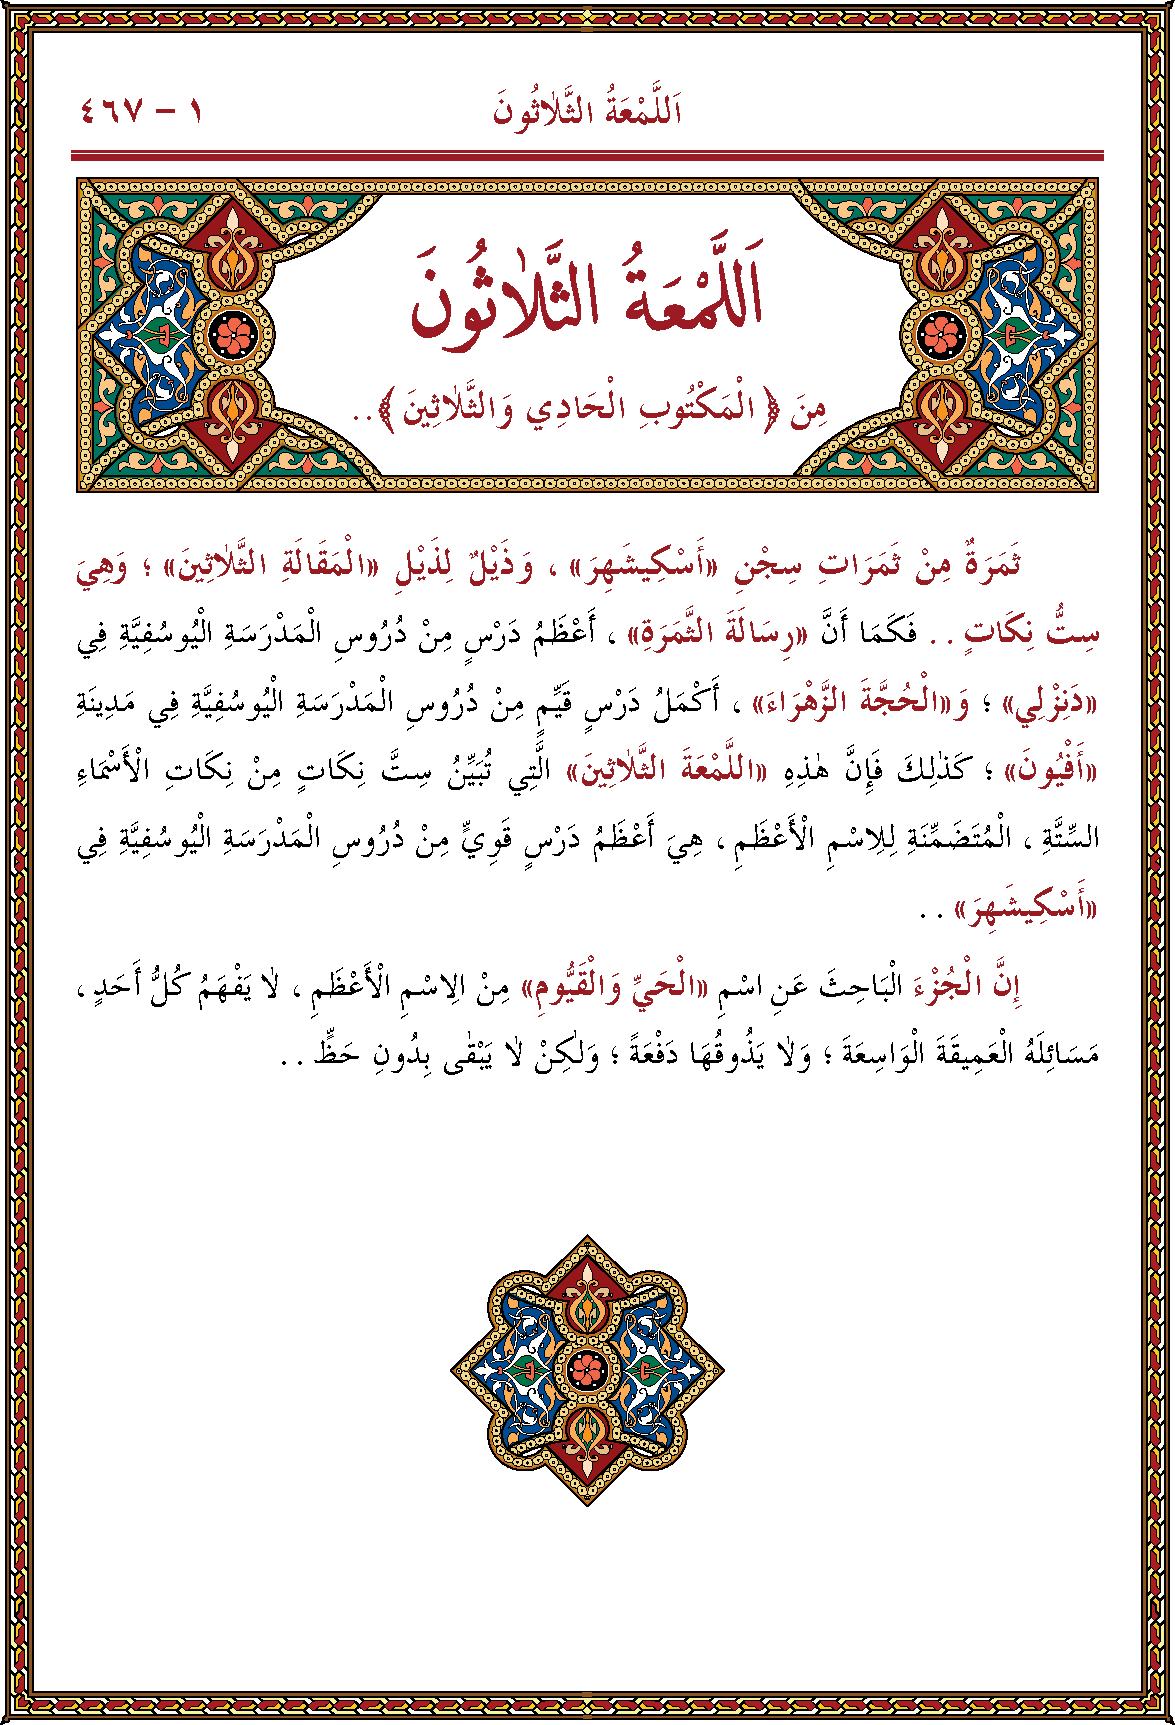 اَللَّمْعَةُ الثَّلَاثُونَ
١ – ٤٦٧
اَللَّمْعَةُ الثَّلَاثُونَ
مِنَ ﴿ الْمَكْتُوبِ الْحَادِي وَالثَّلَاثِينَ ﴾..
ثَمَرَةٌ مِنْ ثَمَرَاتِ سِجْنِ «أَسْكِيشَهِرَ» ، وَذَيْلٌ لِذَيْلِ «الْمَقَالَةِ الثَّلَاثِينَ» ؛ وَهِيَ
سِتُّ نِكَاتٍ . . فَكَمَا أَنَّ «رِسَالَةَ الثَّمَرَةِ» ، أَعْظَمُ دَرْسٍ مِنْ دُرُوسِ الْمَدْرَسَةِ الْيُوسُفِيَّةِ فِي
«دَنِزْلِي» ؛ وَ«الْحُجَّةَ الزَّهْرَاءَ» ، أَكْمَلُ دَرْسٍ قَيِّمٍ مِنْ دُرُوسِ الْمَدْرَسَةِ الْيُوسُفِيَّةِ فِي مَدِينَةِ
«أَفْيُونَ» ؛ كَذٰلِكَ فَإِنَّ هٰذِهِ «اللَّمْعَةَ الثَّلَاثِينَ» الَّتِي تُبَيِّنُ سِتَّ نِكَاتٍ مِنْ نِكَاتِ الْأَسْمَاءِ
السِّتَّةِ ، الْمُتَضَمِّنَةِ لِلِاسْمِ الْأَعْظَمِ ، هِيَ أَعْظَمُ دَرْسٍ قَوِيٍّ مِنْ دُرُوسِ الْمَدْرَسَةِ الْيُوسُفِيَّةِ فِي
«أَسْكِيشَهِرَ» . .
إِنَّ الْجُزْءَ الْبَاحِثَ عَنِ اسْمِ «الْحَيِّ وَالْقَيُّومِ» مِنْ الِاسْمِ الْأَعْظَمِ ، لَا يَفْهَمُ كُلُّ أَحَدٍ ،
مَسَائِلَهُ الْعَمِيقَةَ الْوَاسِعَةَ ؛ وَلَا يَذُوقُهَا دَفْعَةً ؛ وَلٰكِنْ لَا يَبْقٰى بِدُونِ حَظٍّ . .